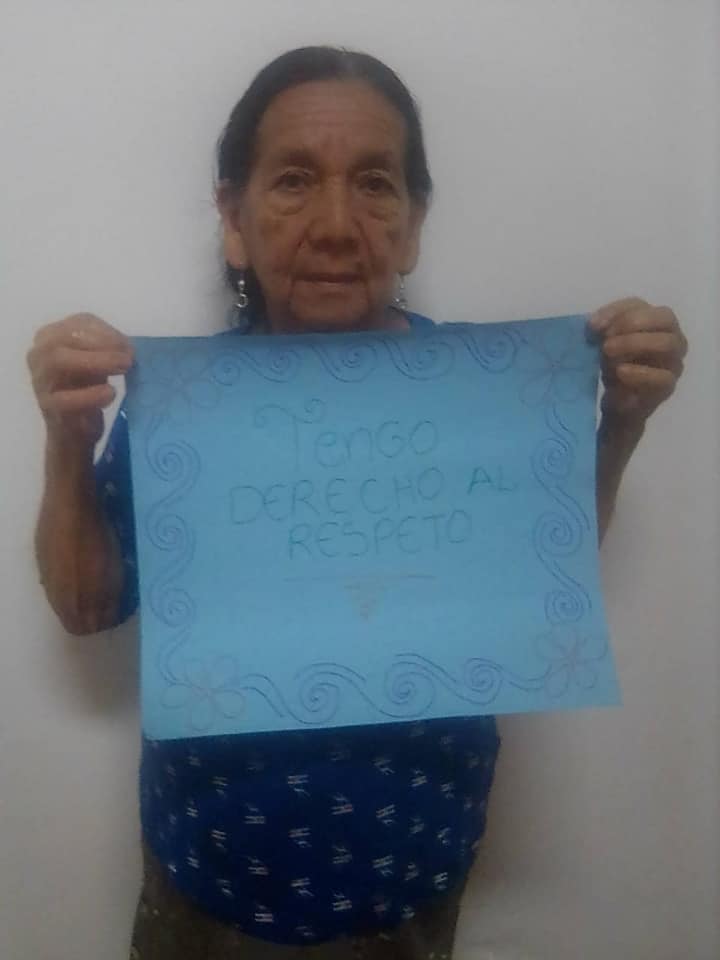 TENGO
DERECHO AL
RESPETO